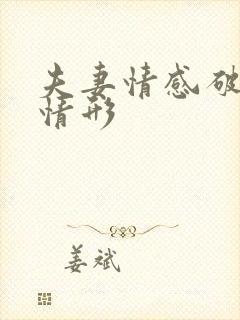 夫妻情感破
情形
姜斌